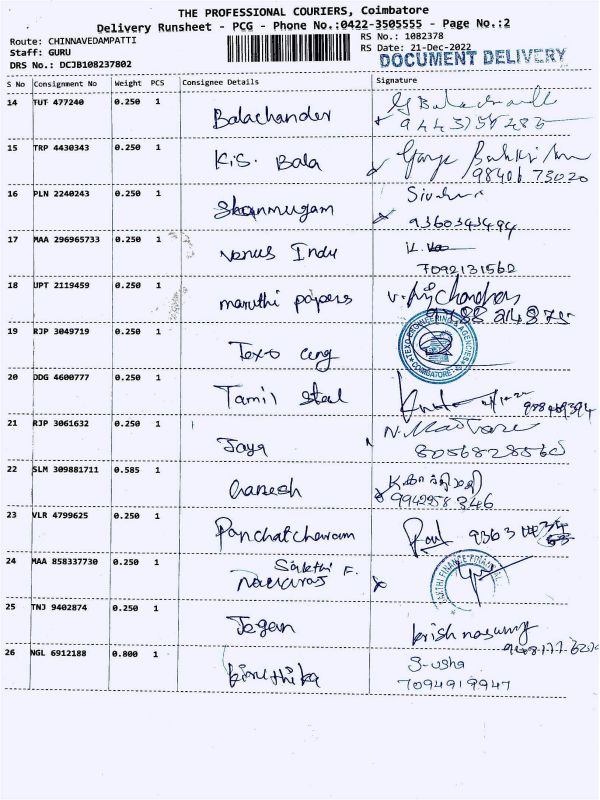 THE PROFESSIONAL COURIERS, Coimbatore
Delivery Runsheet - PCG - Phone No.:0422-3505555 - Page No.:2
Route: CHINNAVEDAMPATTI
Staff: GURU
DRS No.: DCJB108237802
RS No.: 1082378
RS Date: 21-Dec-2022
DOCUMENT DELIVERY
S No Consignment No Weight PCS Consignee Details Signature
14 TUT 477240 0.250 1 Balachander
15 TRP 4430343 0.250 1 K.S. Bala
98406 73020
16 PLN 2240243 0.250 1 Shanmugam
9360343494
17 MAA 296965733 0.250 1 Venus Indu
7092131562
18 UPT 2119459 0.250 1 maruthi papers
19 RJP 3049719 0.250 1 Texo eng
TEXO ENGINEERING AGENCIES
COIMBATORE
20 DDG 4600777 0.250 1 Tamil steel
21 RJP 3061632 0.250 1 Jaya
8056828560
22 SLM 309881711 0.585 1 Ganesh
9942258346
23 VLR 4799625 0.250 1 Panchatcharam
9363
24 MAA 858337730 0.250 1 Sakthi F.
25 TNJ 9402874 0.250 1 Jegan
26 NGL 6912188 0.800 1 Kiruthika S-usha
7094919947